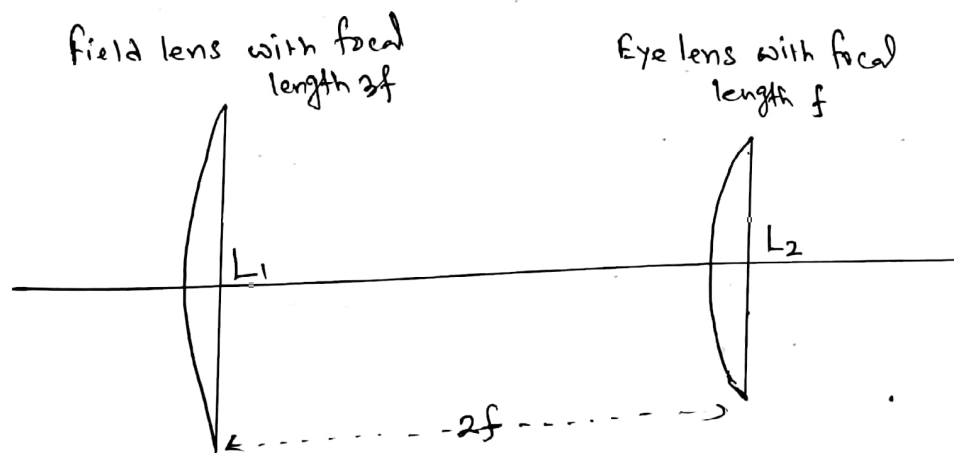 Field lens with focal
length 3f
Eye lens with focal
length f
L1
L2
2f